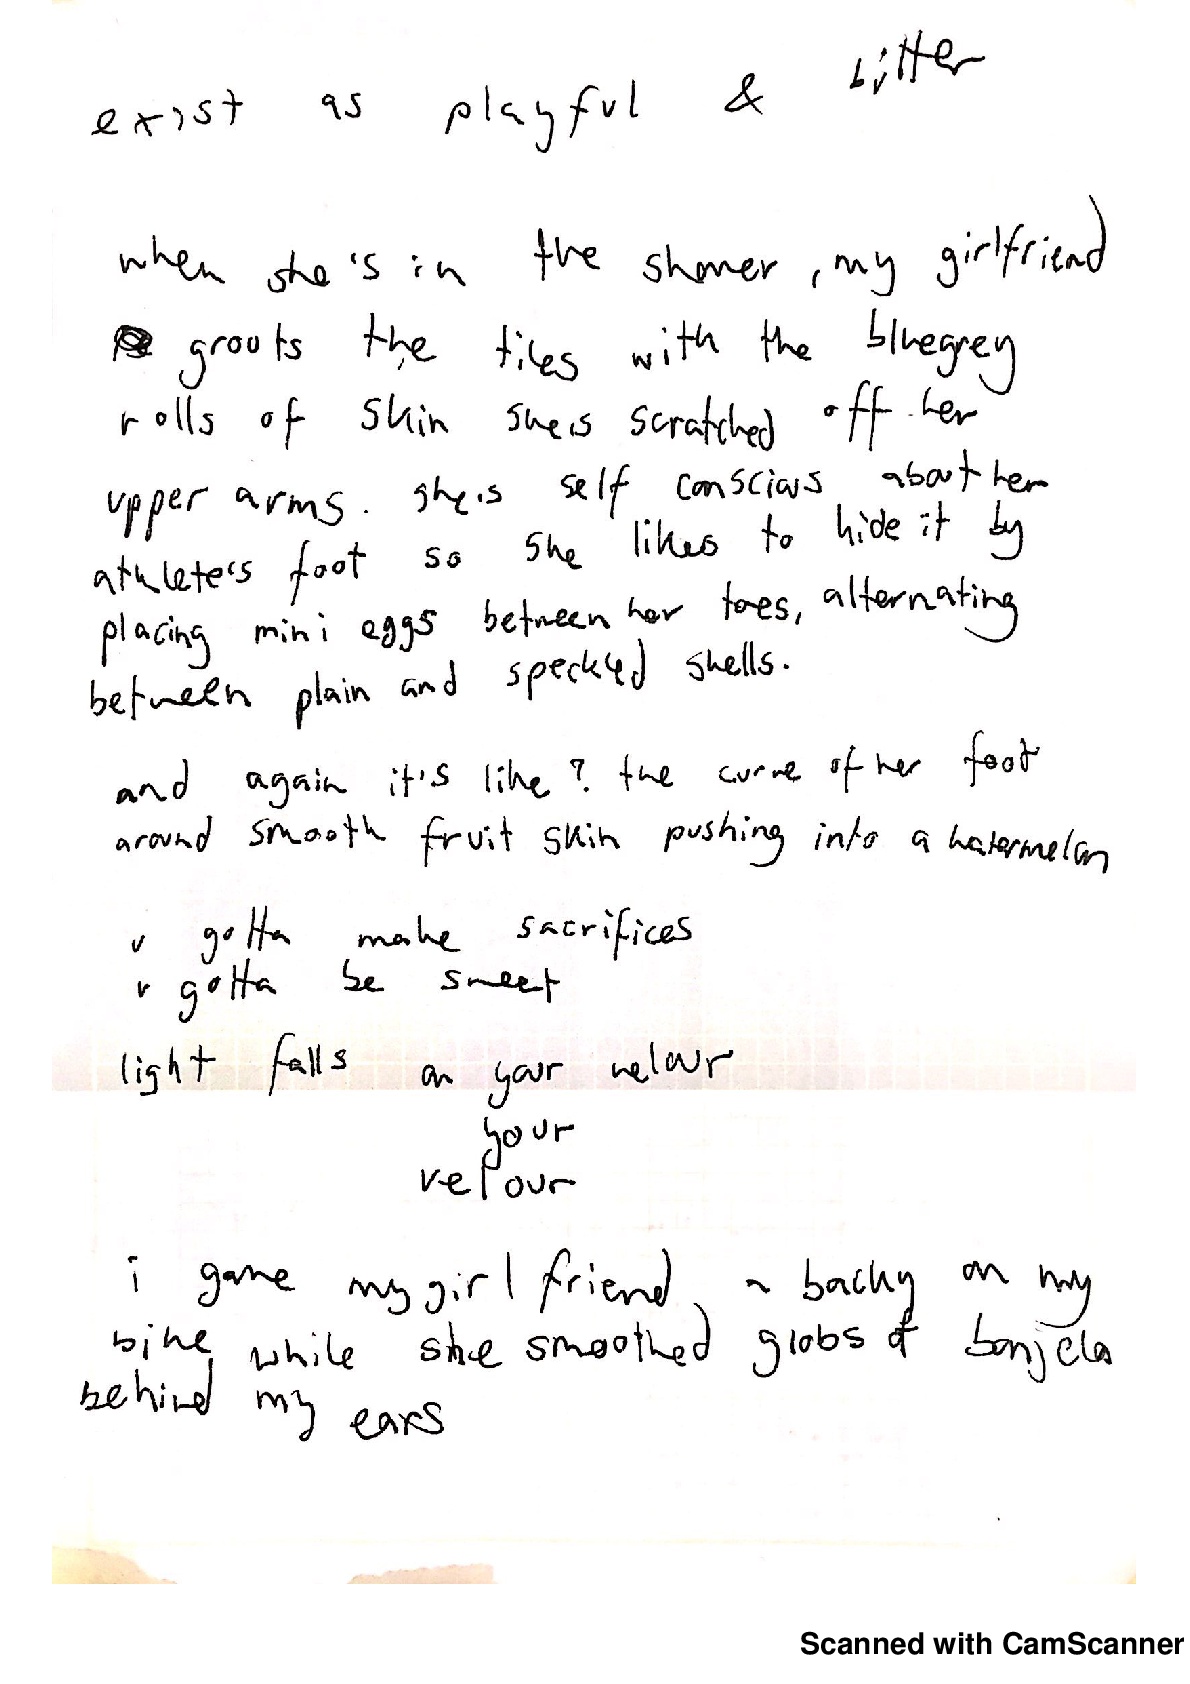 exist as playful & bitter
when she's in the shower, my girlfriend
grouts the tiles with the bluegrey
rolls of skin she's scratched off her
upper arms. she's self conscious about her
athlete's foot so she likes to hide it by
placing mini eggs between her toes, alternating
between plain and speckled shells.
and again it's like? the curve of her foot
around smooth fruit skin pushing into a watermelon
v gotta make sacrifices
v gotta be sweet
light falls on your velour
your
velour
i gave my girlfriend a backy on my
bike while she smoothed globs of bonjela
behind my ears
Scanned with CamScanner